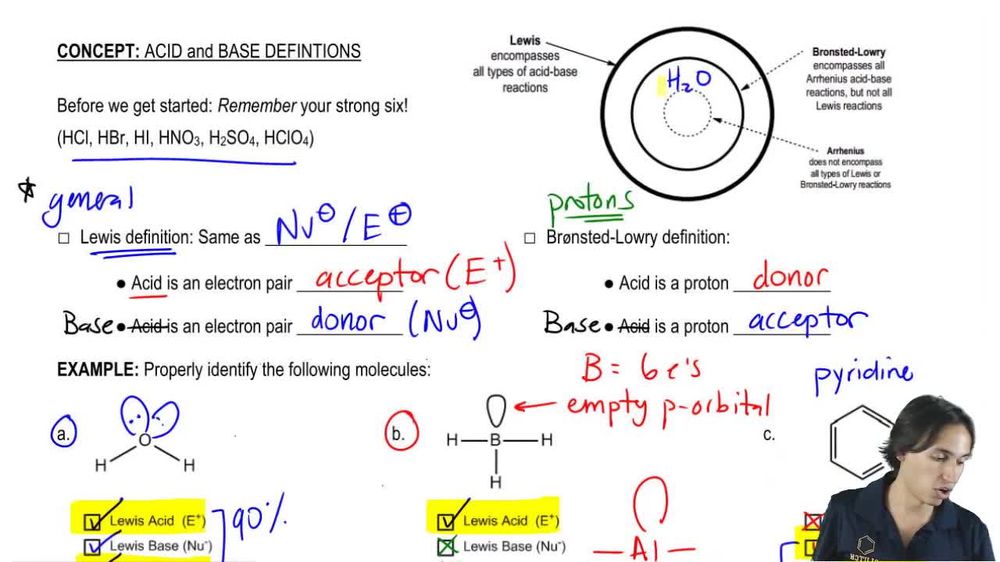 CONCEPT: ACID and BASE DEFINTIONS
Before we get started: Remember your strong six!
(HCl, HBr, HI, HNO₃, H₂SO₄, HClO₄)
Lewis
encompasses
all types of acid-base
reactions
H₂O
Bronsted-Lowry
encompasses all
Arrhenius acid-base
reactions, but not all
Lewis reactions
Arrhenius
does not encompass
all types of Lewis or
Bronsted-Lowry reactions
general
□ Lewis definition: Same as Nu⊖/E⊕
• Acid is an electron pair acceptor (E+)
Base • Acid is an electron pair donor (Nu⊖)
protons
□ Brønsted-Lowry definition:
• Acid is a proton donor
Base • Acid is a proton acceptor
EXAMPLE: Properly identify the following molecules:
a.
O
H H
Lewis Acid (E⁺)
Lewis Base (Nu⁻)
90%
B = 6 e's
empty p-orbital
b.
H—B—H
H
Lewis Acid (E⁺)
Lewis Base (Nu⁻)
— Al —
pyridine
c.